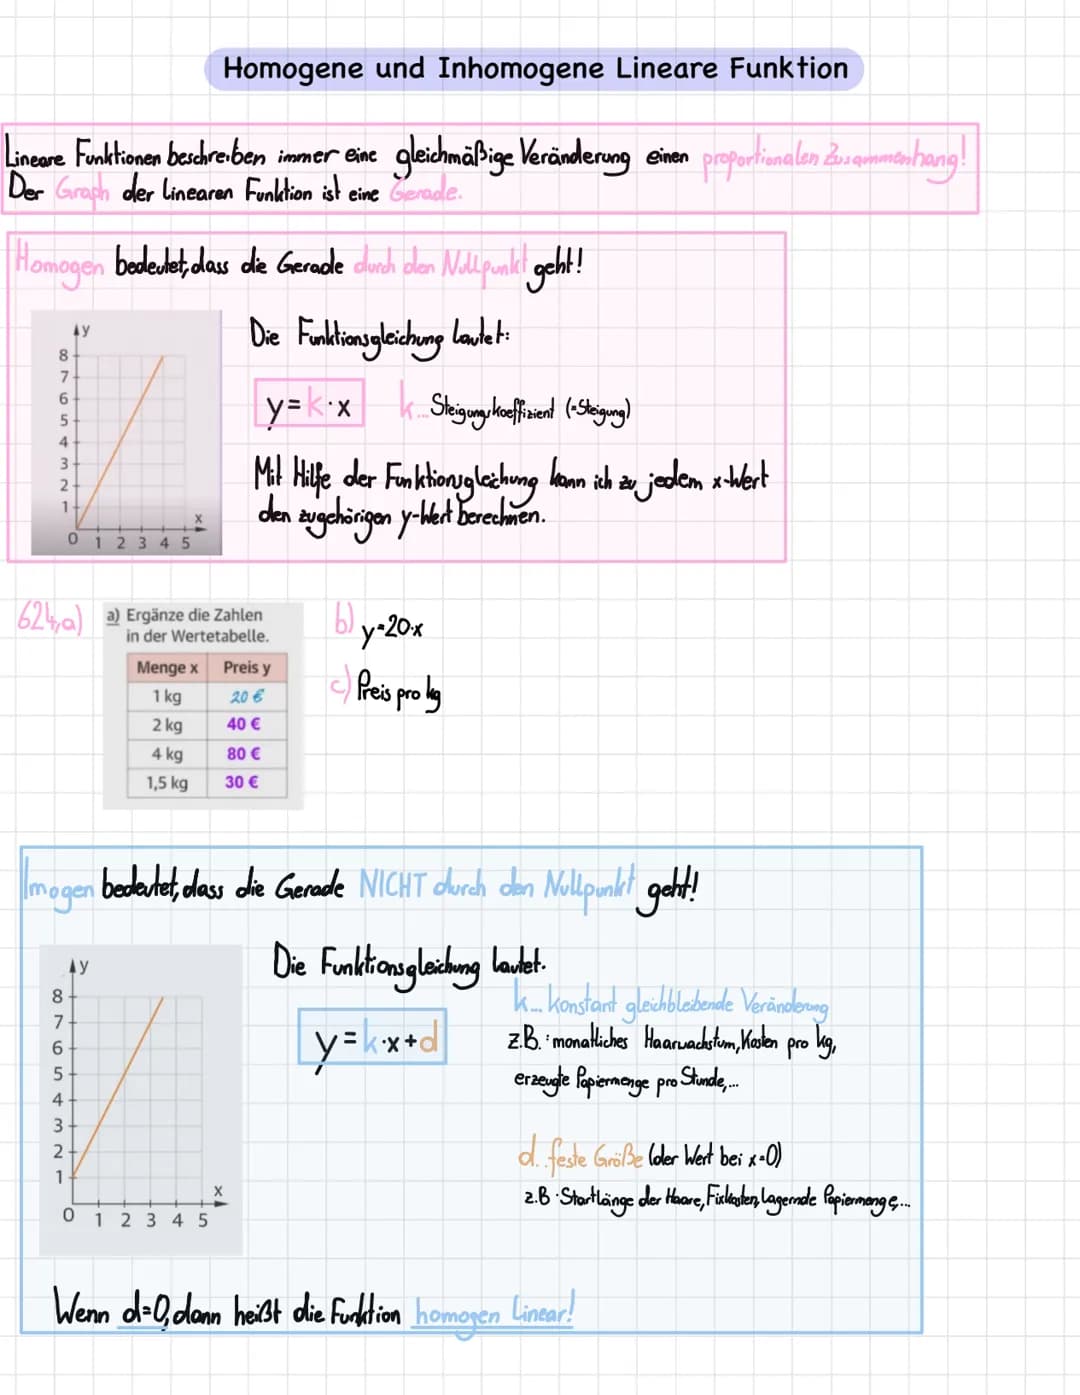 Homogene und Inhomogene Lineare Funktion
Lineare Funktionen beschreiben immer eine gleichmäßige Veränderung einen proportionalen Zusammenhang!
Der Graph der linearen Funktion ist eine Gerade.
Homogen bedeutet, dass die Gerade durch den Nullpunkt geht!
y
8
7
6
5
4
3
2
1
x
0 1 2 3 4 5
Die Funktionsgleichung lautet:
y=k·x k... Steigungskoeffizient (=Steigung)
Mit Hilfe der Funktionsgleichung kann ich zu jedem x-Wert
den zugehörigen y-Wert berechnen.
624,a)
a) Ergänze die Zahlen
in der Wertetabelle.
Menge x Preis y
1 kg 20 €
2 kg 40 €
4 kg 80 €
1,5 kg 30 €
b) y=20·x
c) Preis pro kg
Imogen bedeutet, dass die Gerade NICHT durch den Nullpunkt geht!
y
8
7
6
5
4
3
2
1
x
0 1 2 3 4 5
Die Funktionsgleichung lautet.
y=k·x+d
k... konstant gleichbleibende Veränderung
z.B.: monatliches Haarwachstum, Kosten pro kg,
erzeugte Papiermenge pro Stunde,...
d.. feste Größe (der Wert bei x=0)
z.B·Startlänge der Haare, Fixkosten, lagernde Papiermenge,...
Wenn d=0, dann heißt die Funktion homogen Linear!